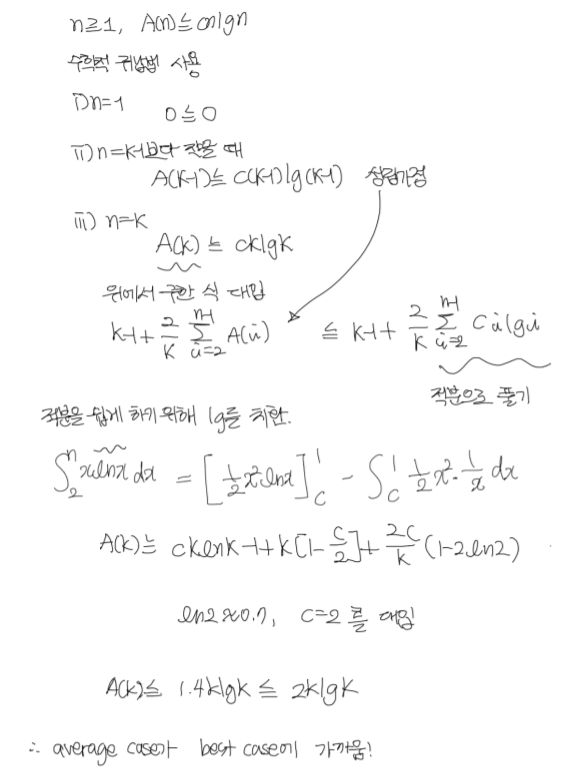 n≥1, A(n)≤cnlgn
수학적 귀납법 사용
i) n=1 0≤0
ii) n=k-1보다 작을 때
A(k-1)≤c(k-1)lg(k-1) 성립가정
iii) n=k
A(k)≤cklgk
위에서 구한 식 대입
k-1+2/k Σ_{i=2}^{n-1} A(i) ≤ k-1+2/k Σ_{i=2}^{n-1} cilgi
적분으로 풀기
적분을 쉽게 하기 위해 lg를 치환.
∫_2^n xlnx dx = [1/2x²lnx]_c^1 - ∫_c^1 1/2x²·1/x dx
A(k)≤cklnk-1+k[1-c/2]+2c/k(1-2ln2)
ln2≈0.7, c=2를 대입
A(k)≤1.4klgk≤2klgk
∴ average case가 best case에 가까움!